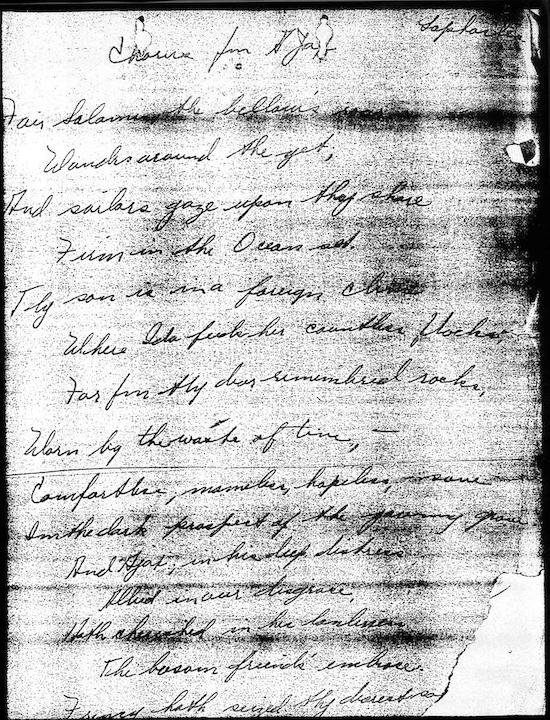 Sophocles
Chorus from Ajax
Fair Salamis, the bellow's roar
Wanders around the yet,
And sailors gaze upon thy shore
Firm in the Ocean set.
Thy son is in a foreign clime
Where Ida feeds her countless flocks,
Far from thy dear remembered rocks,
Worn by the waste of time, —
Comfortless, nameless, hopeless, save
In the dark prospect of the yawning grave
And Ajax, in his deep distress
Allied in our disgrace,
Hath cherished in his loneliness
The bosom friends' embrace.
Frenzy hath seized thy dearest son